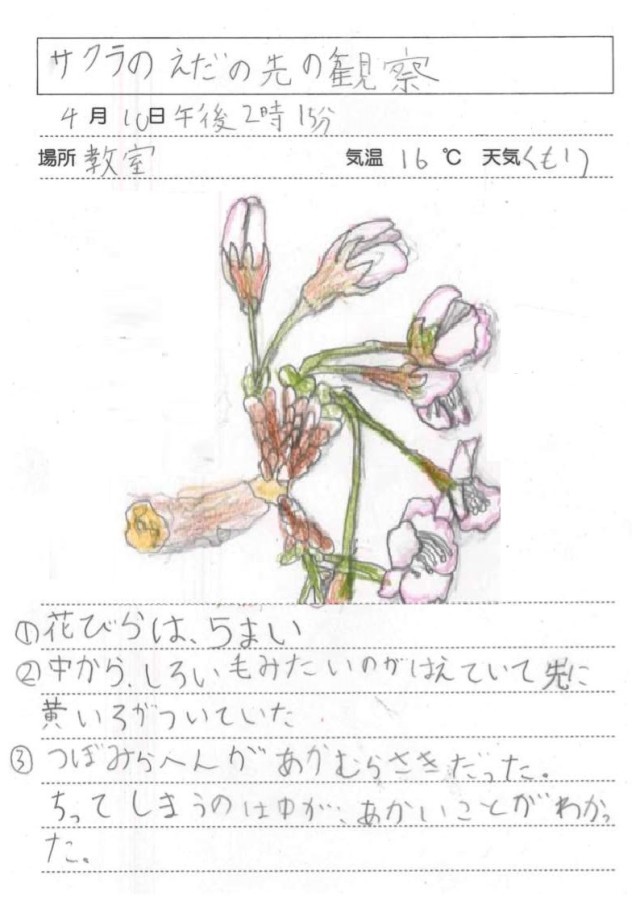 サクラのえだの先の観察
4月10日午後2時15分
場所 教室 気温 16 ℃ 天気くもり
①花びらは、5まい
②中から、しろい毛みたいのがはえていて先に
黄いろがついていた.
③つぼみらへんがあかむらさきだった。
ちってしまうのは中が、あかいことがわかっ
た。